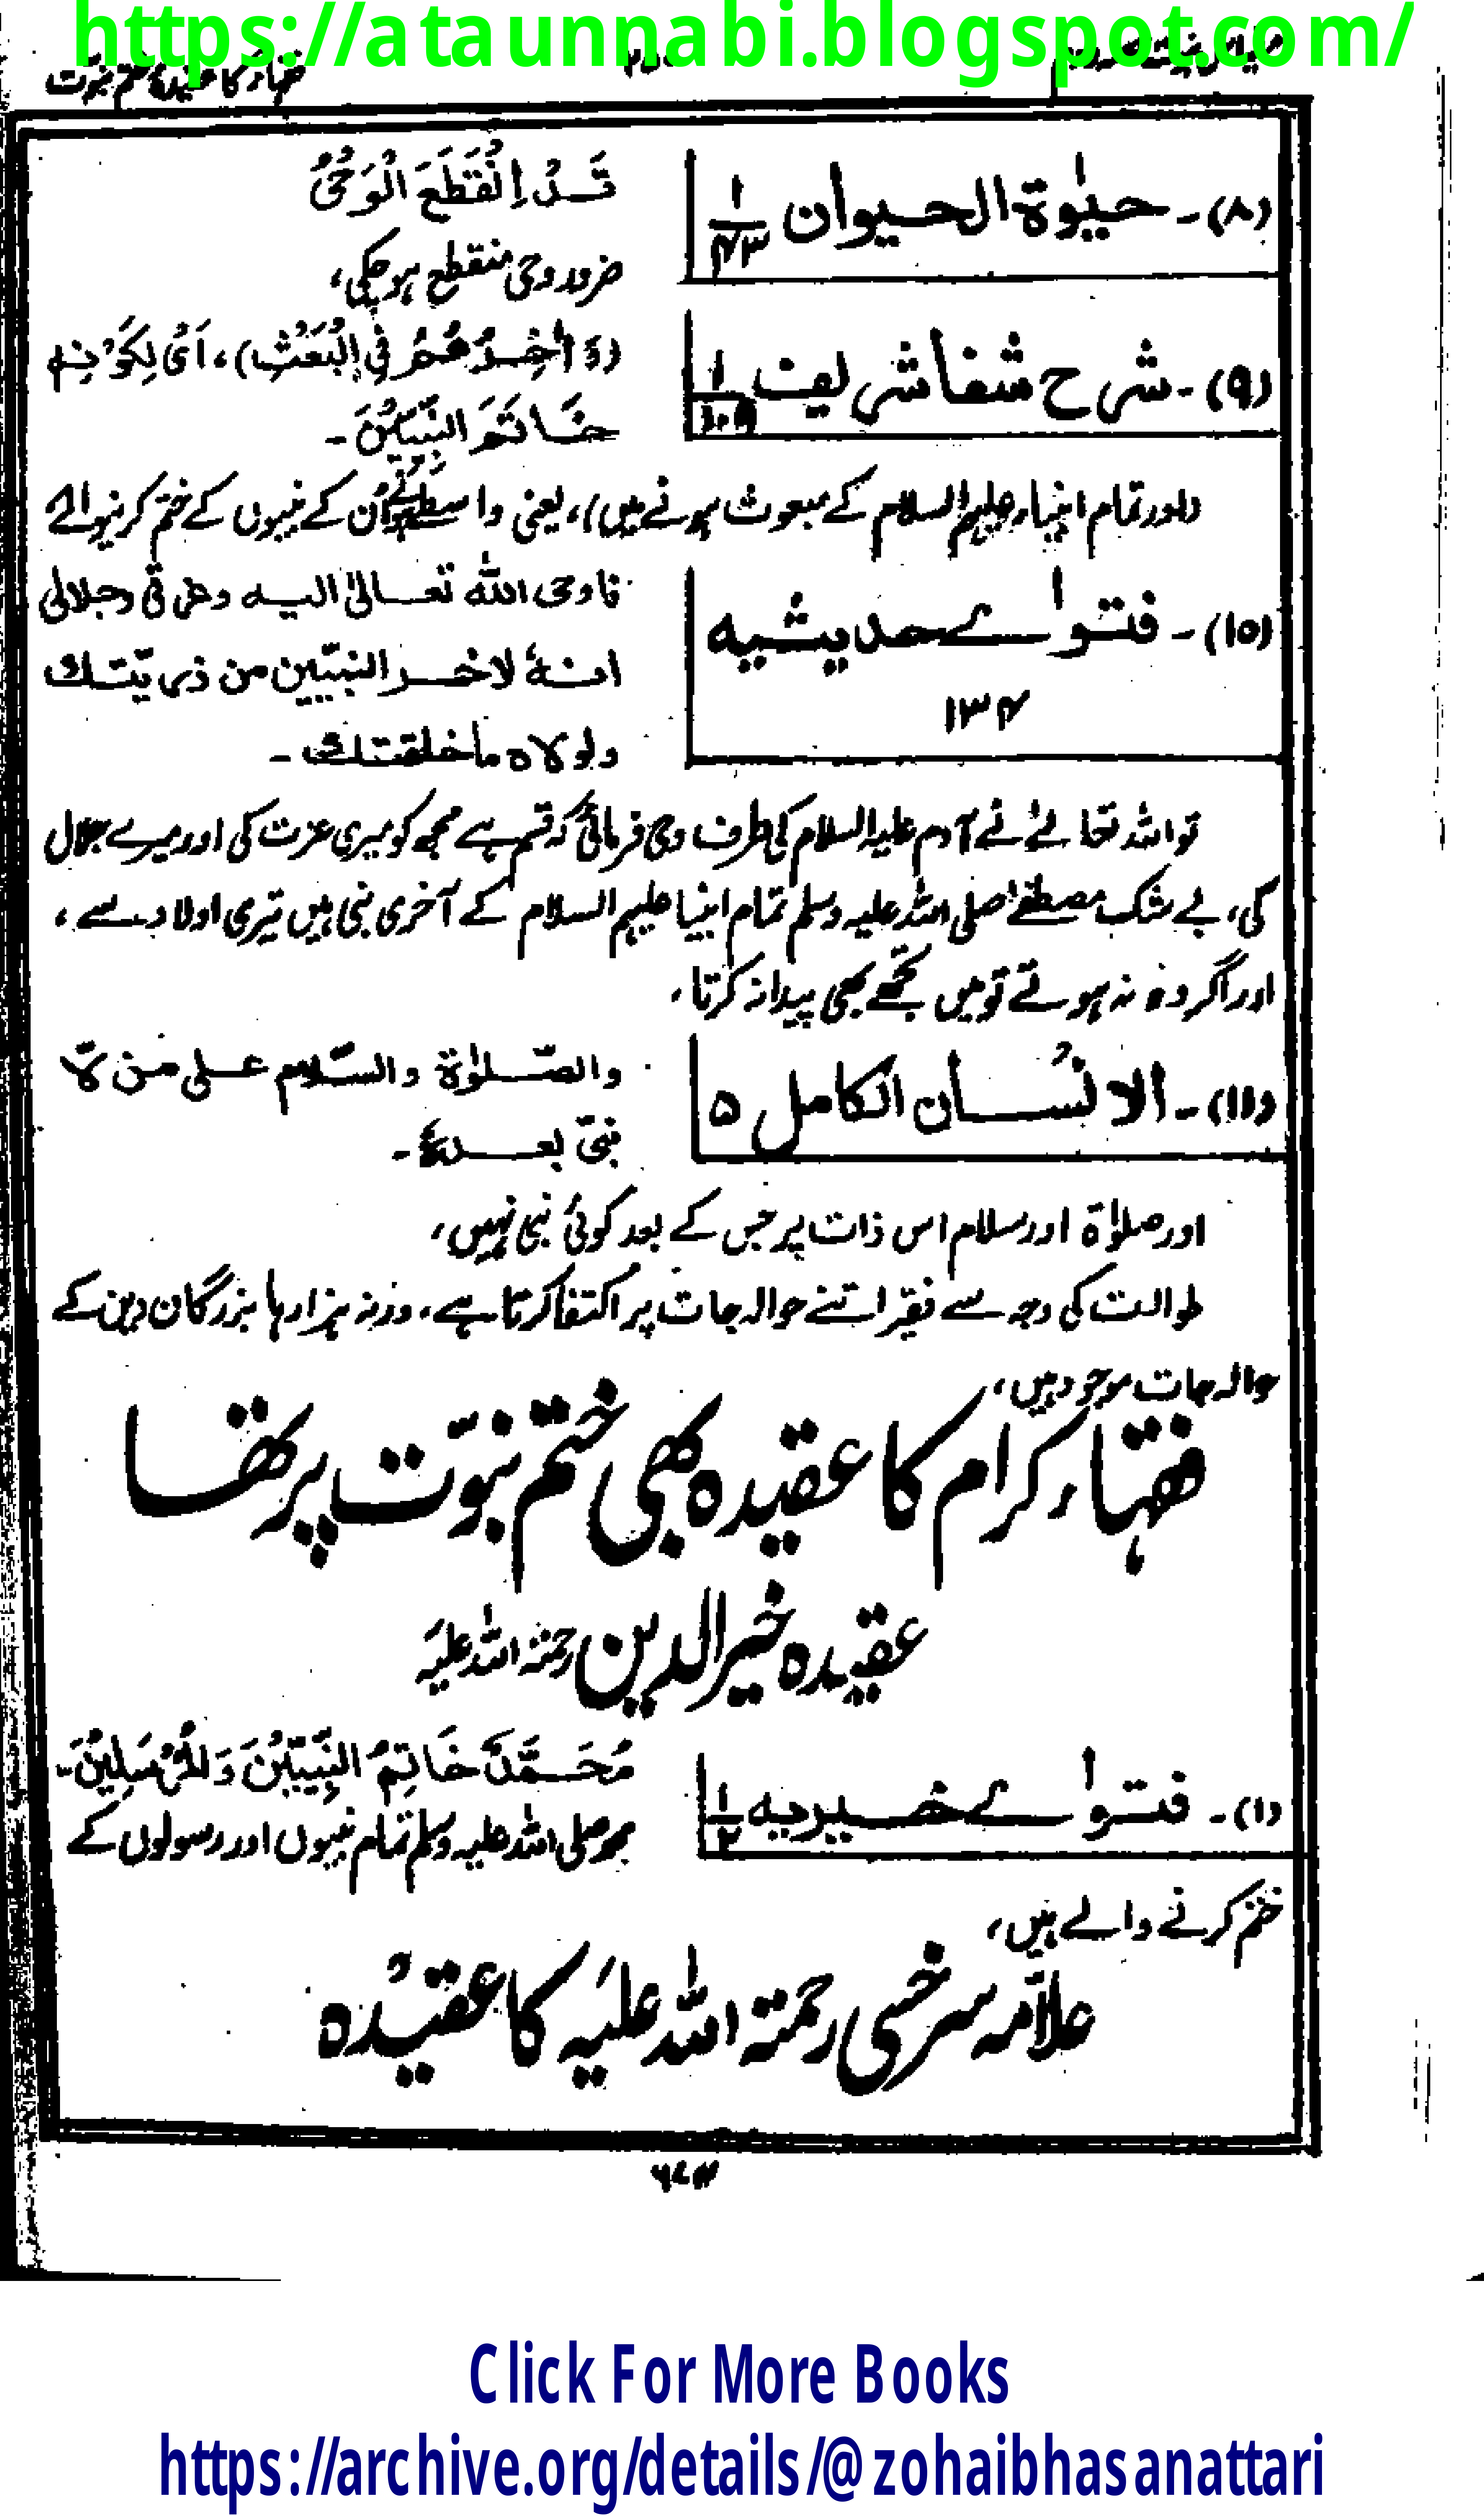 https://ataunnabi.blogspot.com/
(۸)۔ حیٰوۃ الحیوان ۱/۴۳
قَدْ اِنْقَطَعَ الْوَحْیُ
ضرور وحی منقطع ہو چکی،
(۹)۔ شرح شفا شریف ۱/۱۰۹
(وَ اٰخِرُھُمْ فِی الْبَعْثِ)، اَیْ لِکَوْنِہٖ
خَاتَمَ النَّبِیّٖنَ ۔
(اور تمام انبیاء علیہم السلام کے مبعوث ہونے میں)، یعنی واسطے ہونے اُن کے نبیوں کے ختم کرنیوالے
(۱۵)۔ فتوٰے حدیثیہ
۱۳۴
فاوحی اللہ تعالیٰ الیہ وعزتی وجلالی
انہٗ لاٰخر النبیّین من ذریّتک
ولولاہ ما خلقتک ۔
تو اللہ تعالےٰ نے آدم علیہ السلام کی طرف وحی فرمائی کہ قسم ہے مجھ کو میری عزت کی اور میرے جلال
کی، بے شک مصطفےٰ صلی اللہ علیہ وسلم تمام انبیا علیہم السلام کے آخری نبی ہیں تیری اولاد سے،
اور اگر وہ نہ ہوتے تو میں تجھے بھی پیدا نہ کرتا،
(۱۱)۔ الانسان الکامل ۵
والصّلوٰۃ والسّلام علی من لا
نبیّ بعدہٗ ۔
اور صلوٰۃ اور سلام اس ذات پر جس کے بعد کوئی نبی نہیں،
طوالت کی وجہ سے فقیر اتنے حوالہ جات پر اکتفا کرتا ہے، ورنہ ہزارہا بزرگان دین کے
حوالہ جات موجود ہیں،
فقہاء کرام کا عقیدہ بھی ختم نبوّت پر تھا
عقیدہ خیرالدین رحمۃ اللہ علیہ
(۱)۔ فتوٰے خیریہ ۱/۲
مُحَمَّدٌ خَاتِمُ النَّبِیّٖنَ وَالْمُرْسَلِیْنَ ۔
محمد صلی اللہ علیہ وسلم تمام نبیوں اور رسولوں کے
ختم کرنے والے ہیں،
علاّمہ سرخسی رحمۃ اللہ علیہ کا عقیدہ
Click For More Books
https://archive.org/details/@zohaibhasanattari